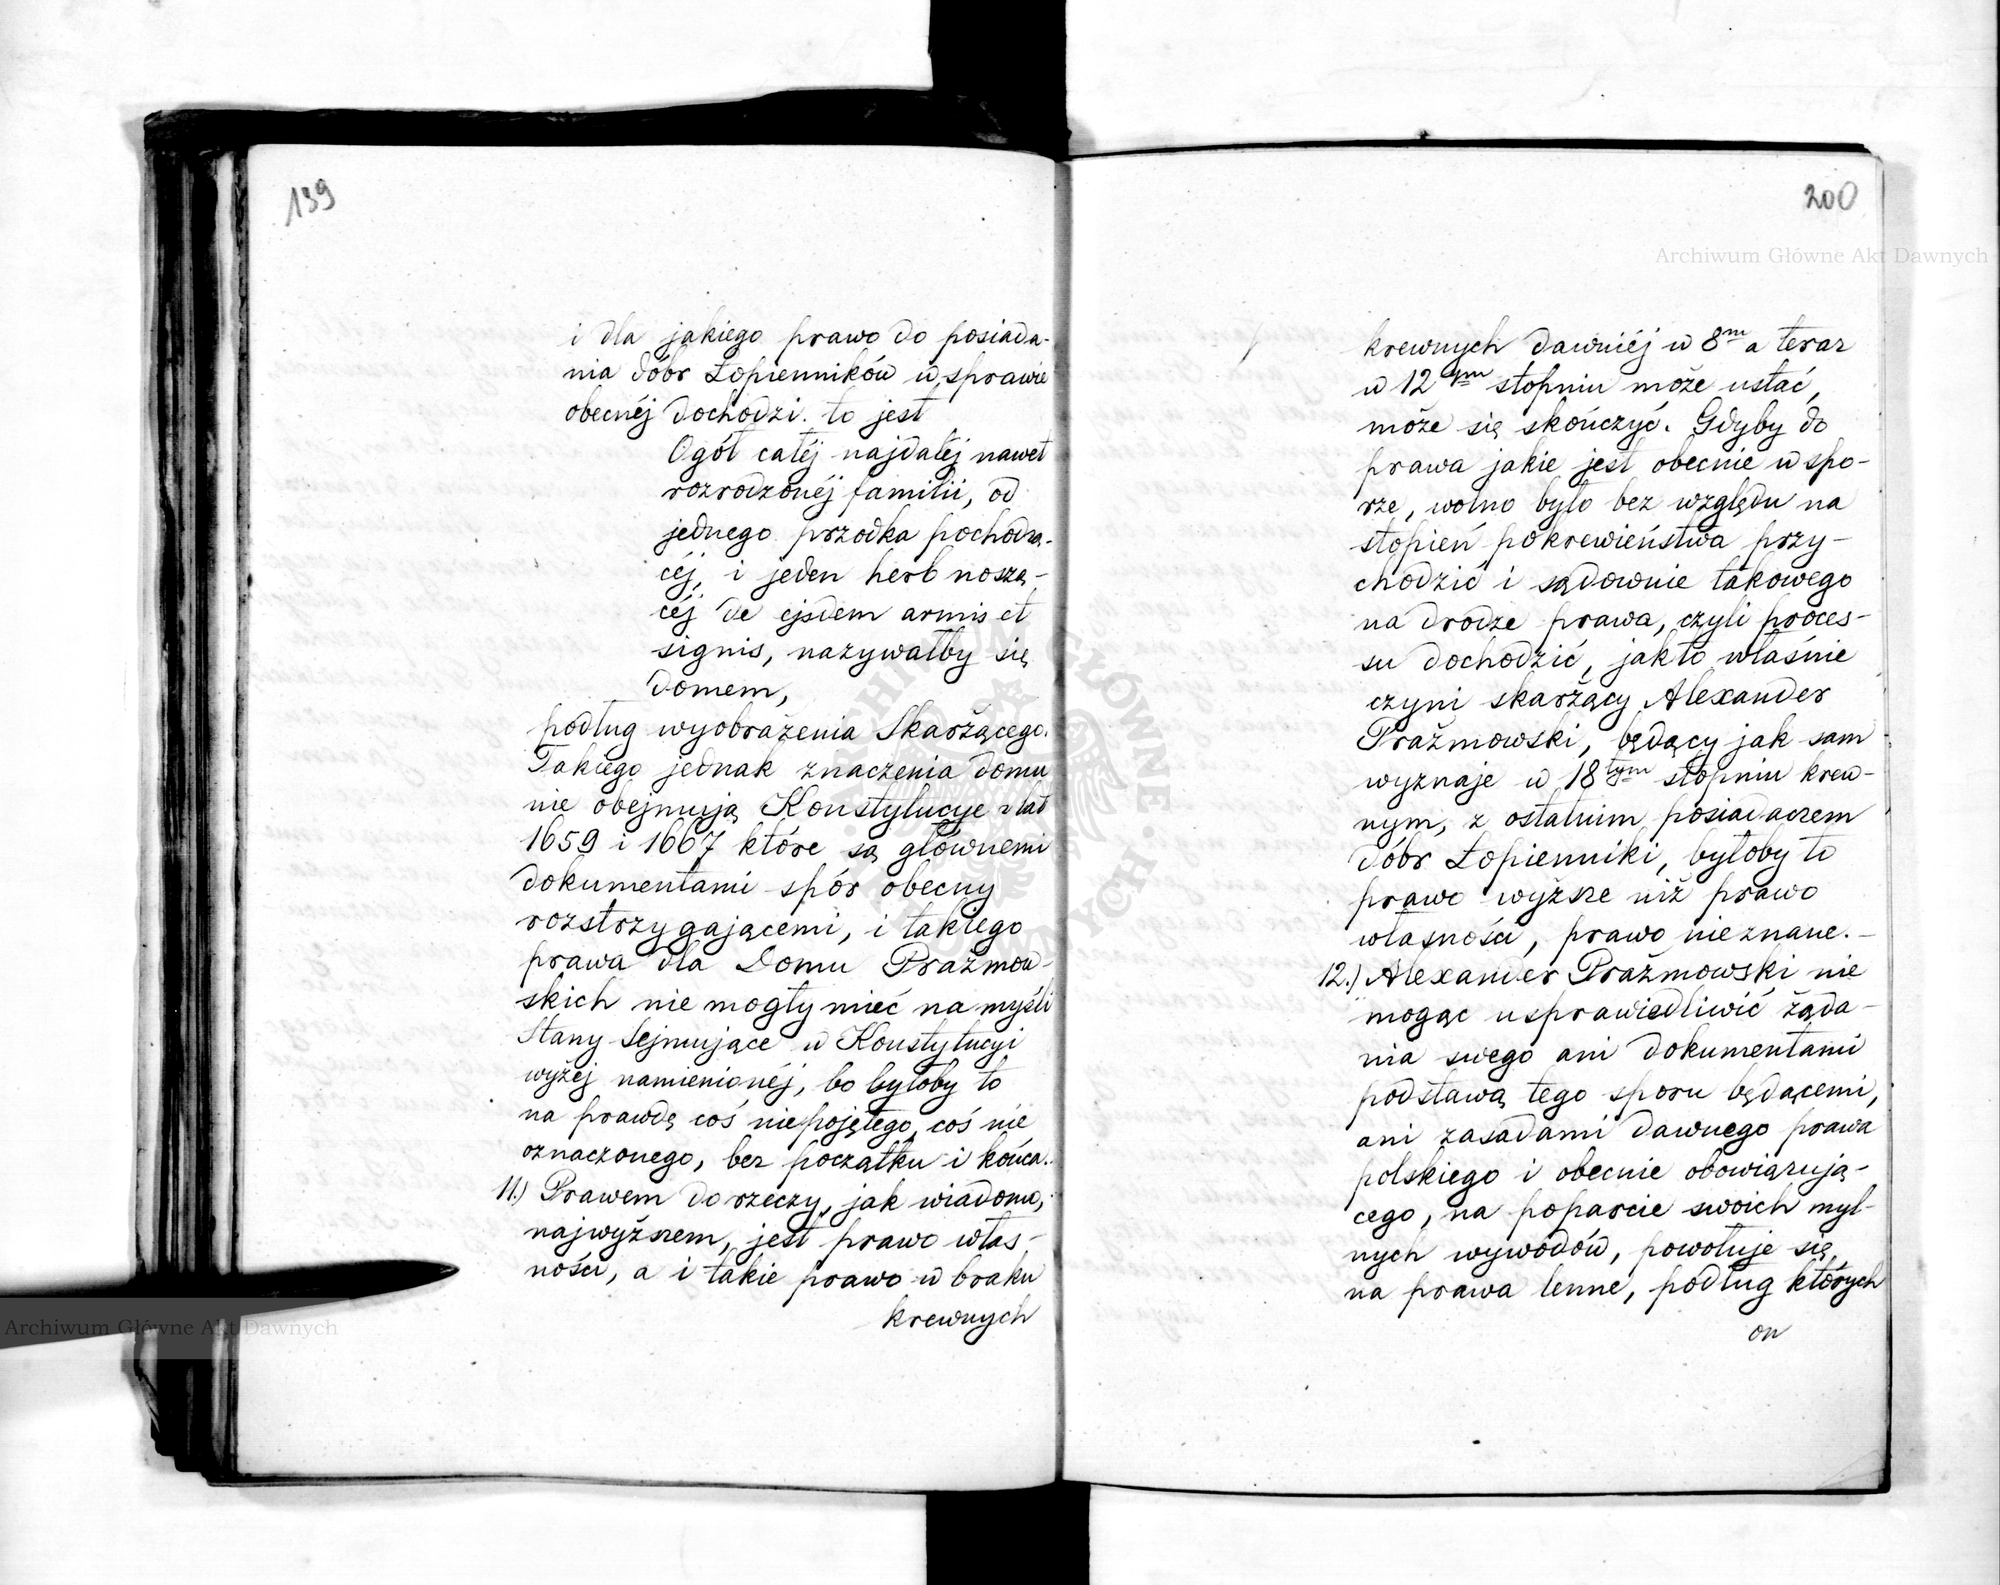 199
i dla jakiego prawo do posiada-
nia dóbr Łopienników w sprawie
obecnéj dochodzi. to jest
Ogół całéj najdaléj nawet
rozrodzonéj familii, od
jednego przodka pochodzą-
céj, i jeden herb noszą-
céj de ejsdem armis et
signis, nazywałby się
domem,
podług wyobrażenia Skarżącego.
Takiego jednak znaczenia domu
nie obejmują Konstytucye z lat
1659 i 1667 które są głównemi
dokumentami spór obecny
rozstrzygającemi, i takiego
prawa dla Domu Prażmow-
skich nie mogły mieć na myśli
Stany Sejmujące w Konstytucyi
wyżéj namienionéj, bo byłoby to
na prawdę coś niepojętego, coś nie
oznaczonego, bez początku i końca.
11.) Prawem do rzeczy, jak wiadomo,
najwyższem, jest prawo włas-
ności, a i takie prawo w braku
krewnych
200
krewnych dawniéj w 8m a teraz
w 12tym stopniu może ustać,
może się skończyć. Gdyby do
prawa jakie jest obecnie w spo-
rze, wolno było bez względu na
stopień pokrewieństwa przy-
chodzić i sądownie takowego
na drodze prawa, czyli proces-
su dochodzić, jak to właśnie
czyni skarżący Alexander
Prażmowski, będący jak sam
wyznaje w 18tym stopniu krew-
nym, z ostatnim posiadaczem
dóbr Łopienniki, byłoby to
prawo wyższe niż prawo
własności, prawo nieznane.-
12.) Alexander Prażmowski nie
mogąc usprawiedliwić żąda-
nia swego ani dokumentami
podstawą tego sporu będącemi,
ani zasadami dawnego prawa
polskiego i obecnie obowiązują-
cego, na poparcie swoich myl-
nych wywodów, powołuje się,
na prawa lenne, podług których
on
Archiwum Główne Akt Dawnych
Archiwum Główne Akt Dawnych